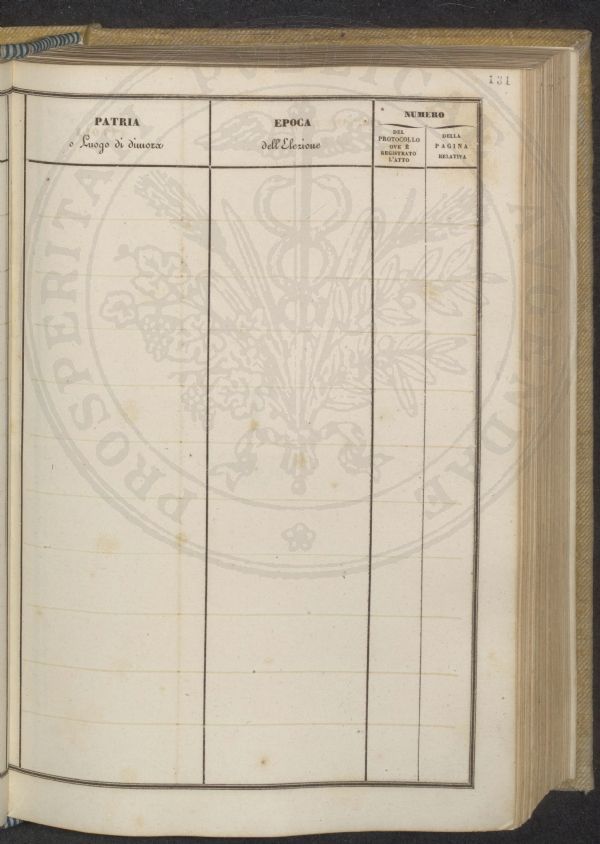 131
PATRIA
o Luogo di dimora
EPOCA
dell'Elezione
NUMERO
DEL
PROTOCOLLO
OVE È
REGISTRATO
L'ATTO
DELLA
PAGINA
RELATIVA
PROSPERITATI PUBLICAE AVGENDAE